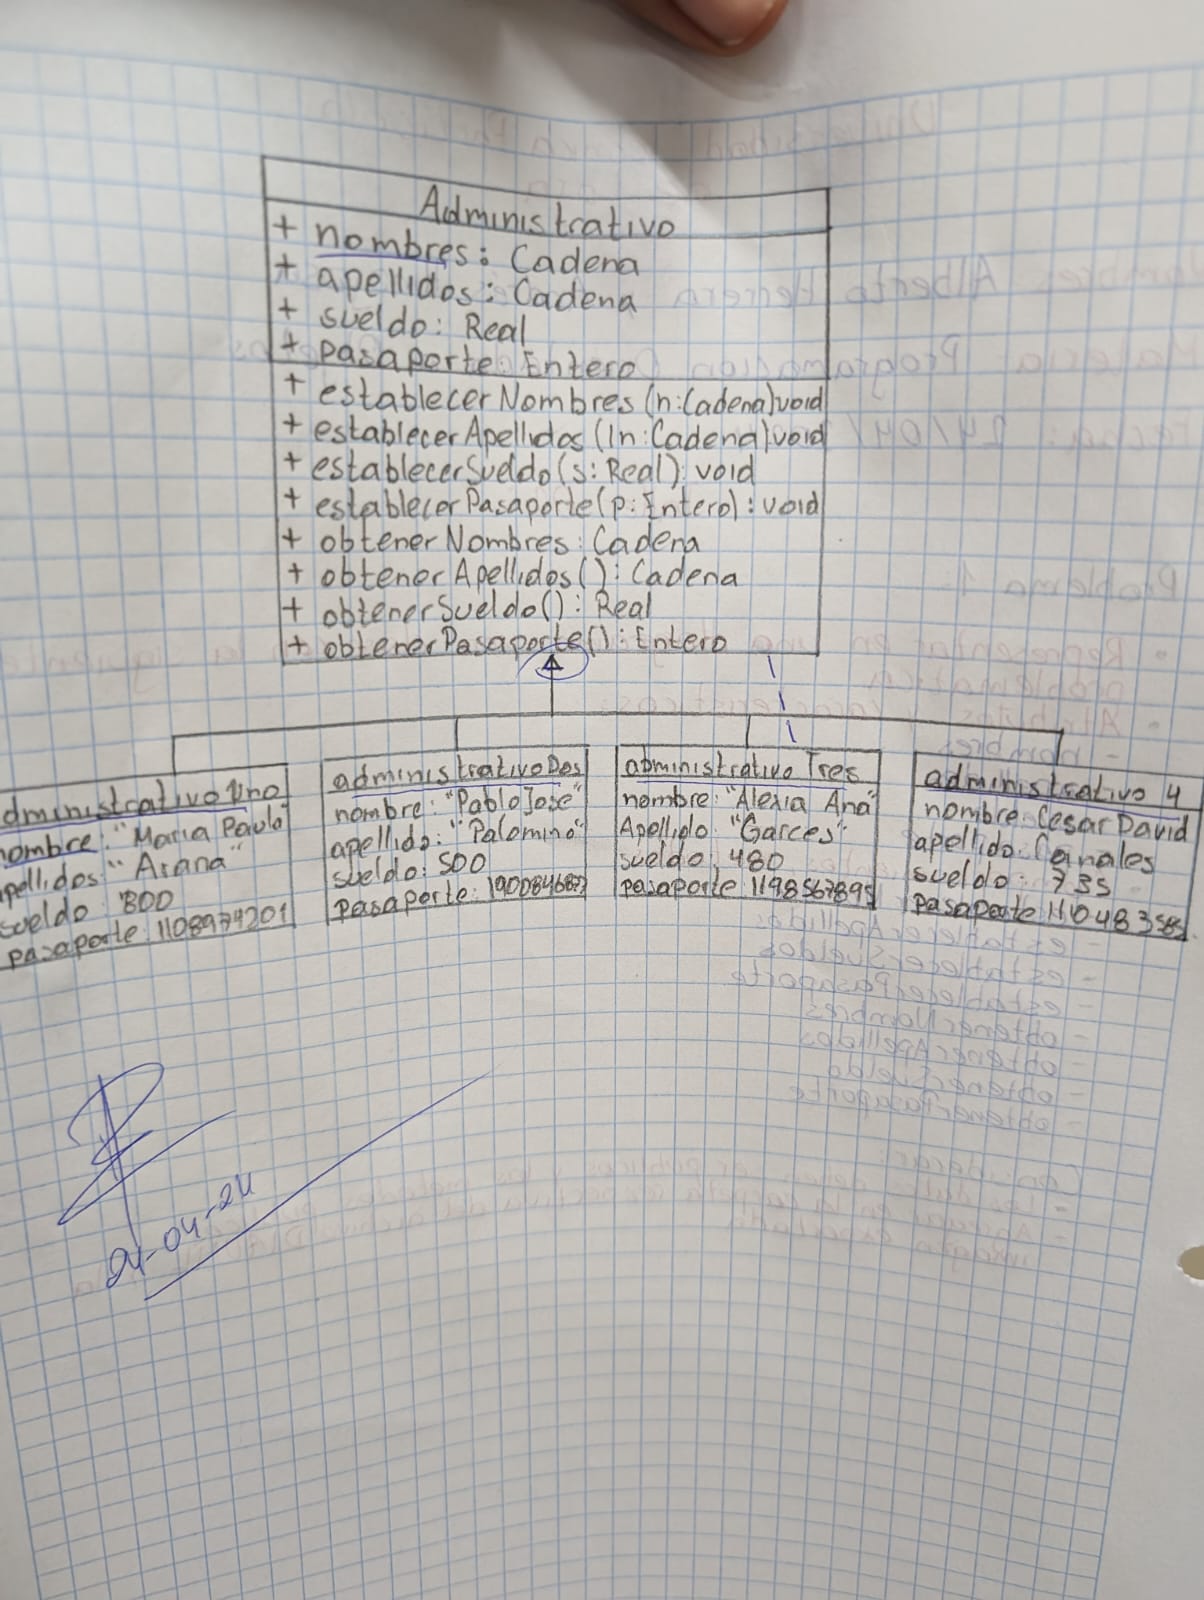 Administrativo
+ nombres: Cadena
+ apellidos: Cadena
+ sueldo: Real
+ pasaporte: Entero
+ establecerNombres (n:Cadena)void
+ establecerApellidos (ln:Cadena):void
+ establecerSueldo (s:Real): void
+ establecerPasaporte(p:Entero):void
+ obtenerNombres: Cadena
+ obtenerApellidos(): Cadena
+ obtenerSueldo(): Real
+ obtenerPasaporte():Entero
dministrativo Uno
ombre: "Maria Paula"
pellidos: "Arana"
sueldo: 800
pasaporte: 1108979201
administrativoDos
nombre: "Pablo Jose"
apellido: "Palomino"
sueldo: 500
Pasaporte:
administrativo Tres
nombre: "Alexia Ana"
Apellido: "Garces"
sueldo: 480
pasaporte: 1198567895
administrativo 4
nombre: Cesar David
apellido: Canales
sueldo: 735
pasaporte:
24-04-24